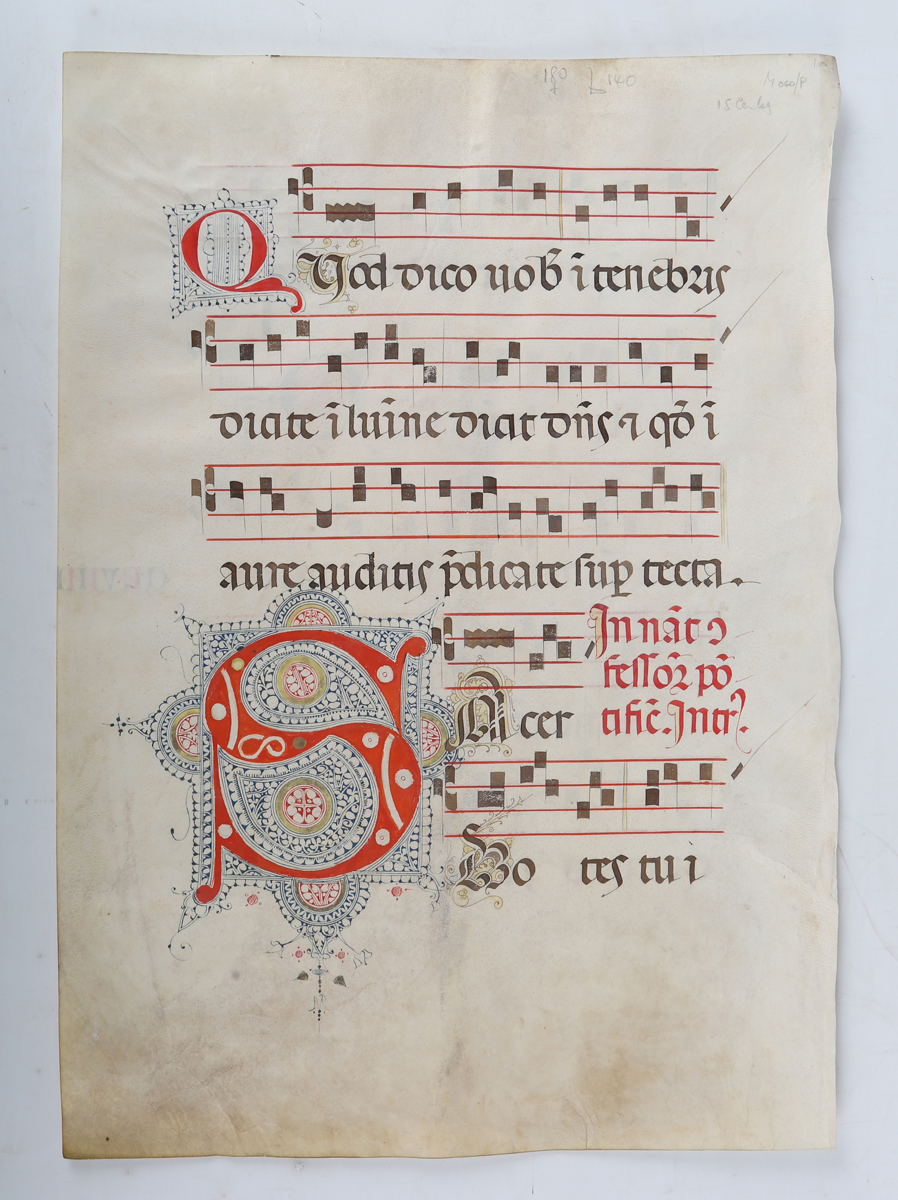 180 L 140
15 Cent
QVod dico uob̄ ī tenebris
dicite ī lum̄ine dicit dn̄s ⁊ qd̄ ī
aure auditis p̄dicate sup̱ tecta.
In nāt ꝯ
SAcer
fessoꝝ pō
tific̄. Intr̄.
Do tes tu i